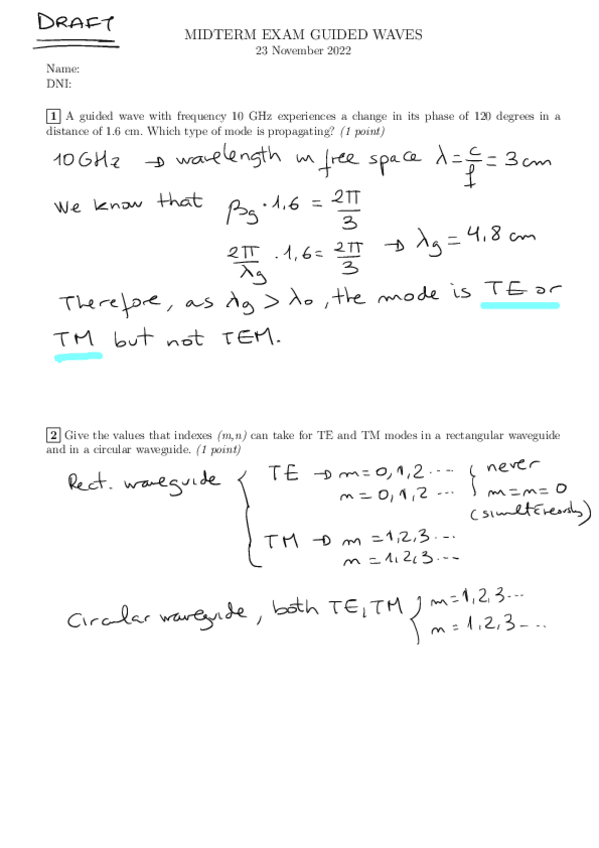 DRAFT
MIDTERM EXAM GUIDED WAVES
23 November 2022
Name:
DNI:
1 A guided wave with frequency 10 GHz experiences a change in its phase of 120 degrees in a
distance of 1.6 cm. Which type of mode is propagating? (1 point)
10 GHz → wavelength in free space λ = c/f = 3 cm
We know that βg · 1,6 = 2π/3
2π/λg · 1,6 = 2π/3 → λg = 4,8 cm
Therefore, as λg > λ0, the mode is TE or
TM but not TEM.
2 Give the values that indexes (m,n) can take for TE and TM modes in a rectangular waveguide
and in a circular waveguide. (1 point)
Rect. waveguide { TE → m = 0,1,2 ... { never
n = 0,1,2 ... m = n = 0
(simultaneously)
TM → m = 1,2,3 ...
n = 1,2,3 ...
Circular waveguide, both TE, TM { m = 1,2,3 ...
n = 1,2,3 ...